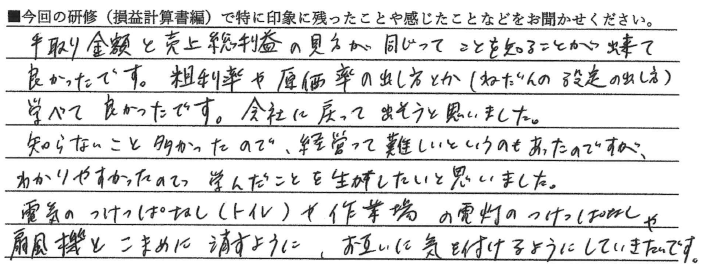 ■今回の研修（損益計算書編）で特に印象に残ったことや感じたことなどをお聞かせください。
手取り金額と売上総利益の見方が同じってことを知ることが出来て
良かったです。粗利率や原価率の出し方とか（ねだんの設定の出し方）
学べて良かったです。会社に戻って出そうと思いました。
知らないこと多かったので、経営って難しいというのもあったのですが、
わかりやすかったので学んだことを生かしたいと思いました。
電気のつけっぱなし（トイレ）や作業場の電灯のつけっぱなしや
扇風機とこまめに消すように、お互いに気を付けるようにしていきたいです。